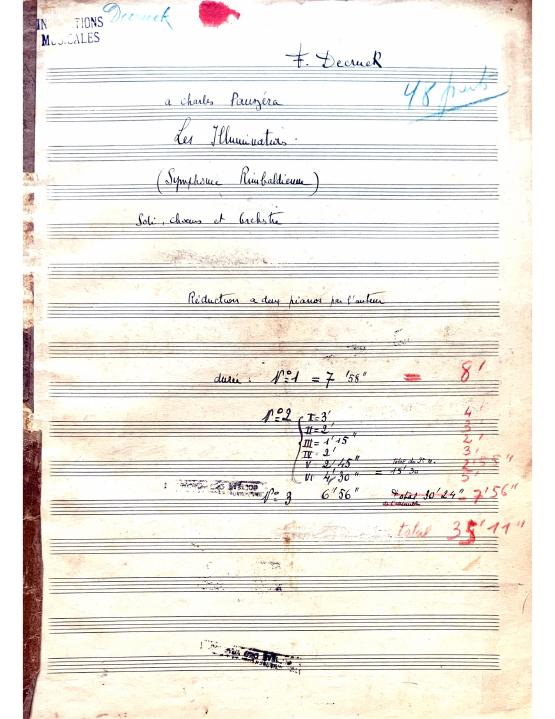 Decruck
MUSICALES
F. Decruck
48 part
à Charles Panzéra
Les Illuminations.
(Symphonie Rimbaldienne)
Soli, chœurs et Orchestre
Réduction à deux pianos par l'auteur
durée : N°1 = 7'58" = 8'
N°2 I = 3' 4'
II = 2' 3'
III = 1'15" 2'
IV = 2' 3'
V 2'45" = 15'30 2'55"
VI 4'30" 5'
N° 3 6'56" Total 30'24" - 7'56"
total 35'11"